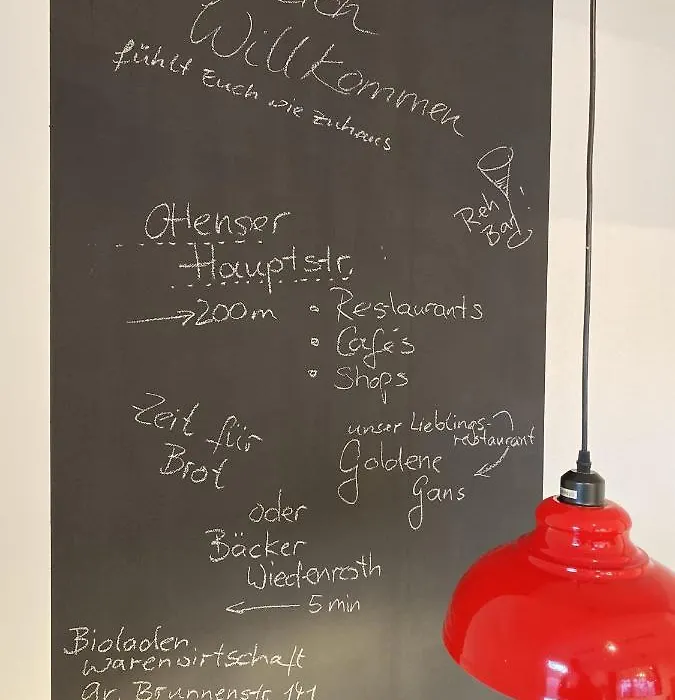 Willkommen
fühlt Euch wie zuhaus
Reh
Bar
Ottenser
Hauptstr.
200m
Restaurants
Cafés
Shops
Zeit für
Brot
unser Lieblings-
restaurant
Goldene
Gans
oder
Bäcker
Wiedenroth
5 min
Bioladen
warenwirtschaft
Gr. Brunnenstr. 141